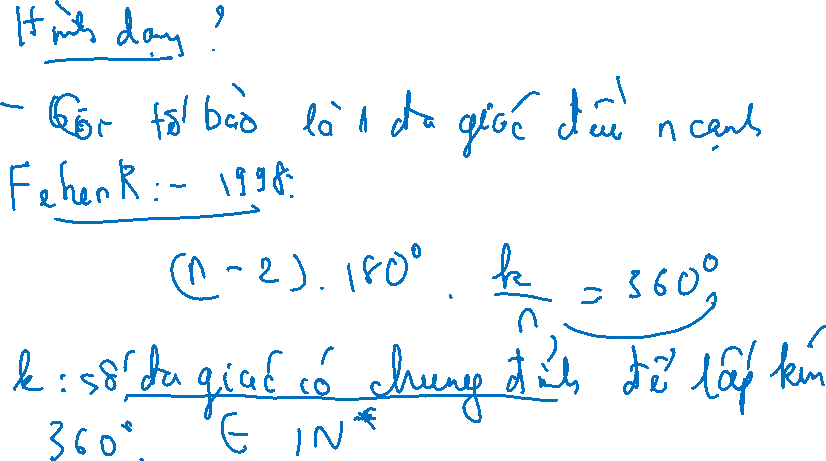 Hình dạng ?
- Các tế bào là 1 đa giác đều n cạnh
Feher R : - 1998:
(n - 2) . 180° . k/n = 360°
k : số đa giác có chung đỉnh để lấp kín
360°. ∈ IN*